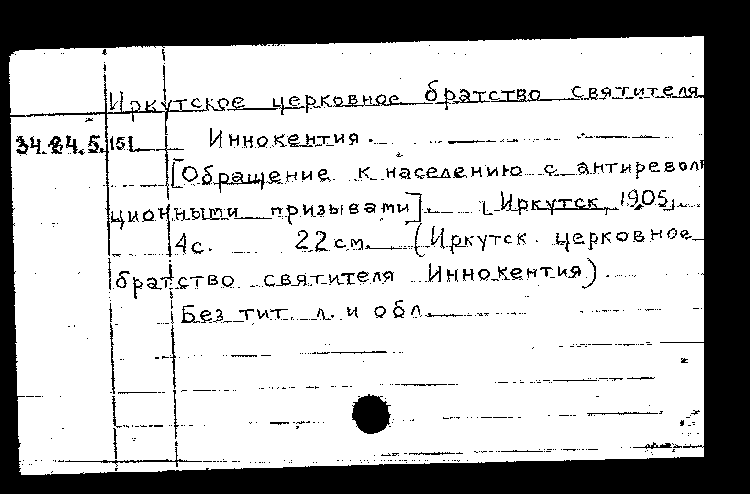 Иркутское церковное братство святителя
34.24.5.151 Иннокентия.
[Обращение к населению с антиреволю
ционными призывами]. [Иркутск, 1905].
4с. 22см. (Иркутск. церковное
братство святителя Иннокентия).
Без тит. л. и обл.